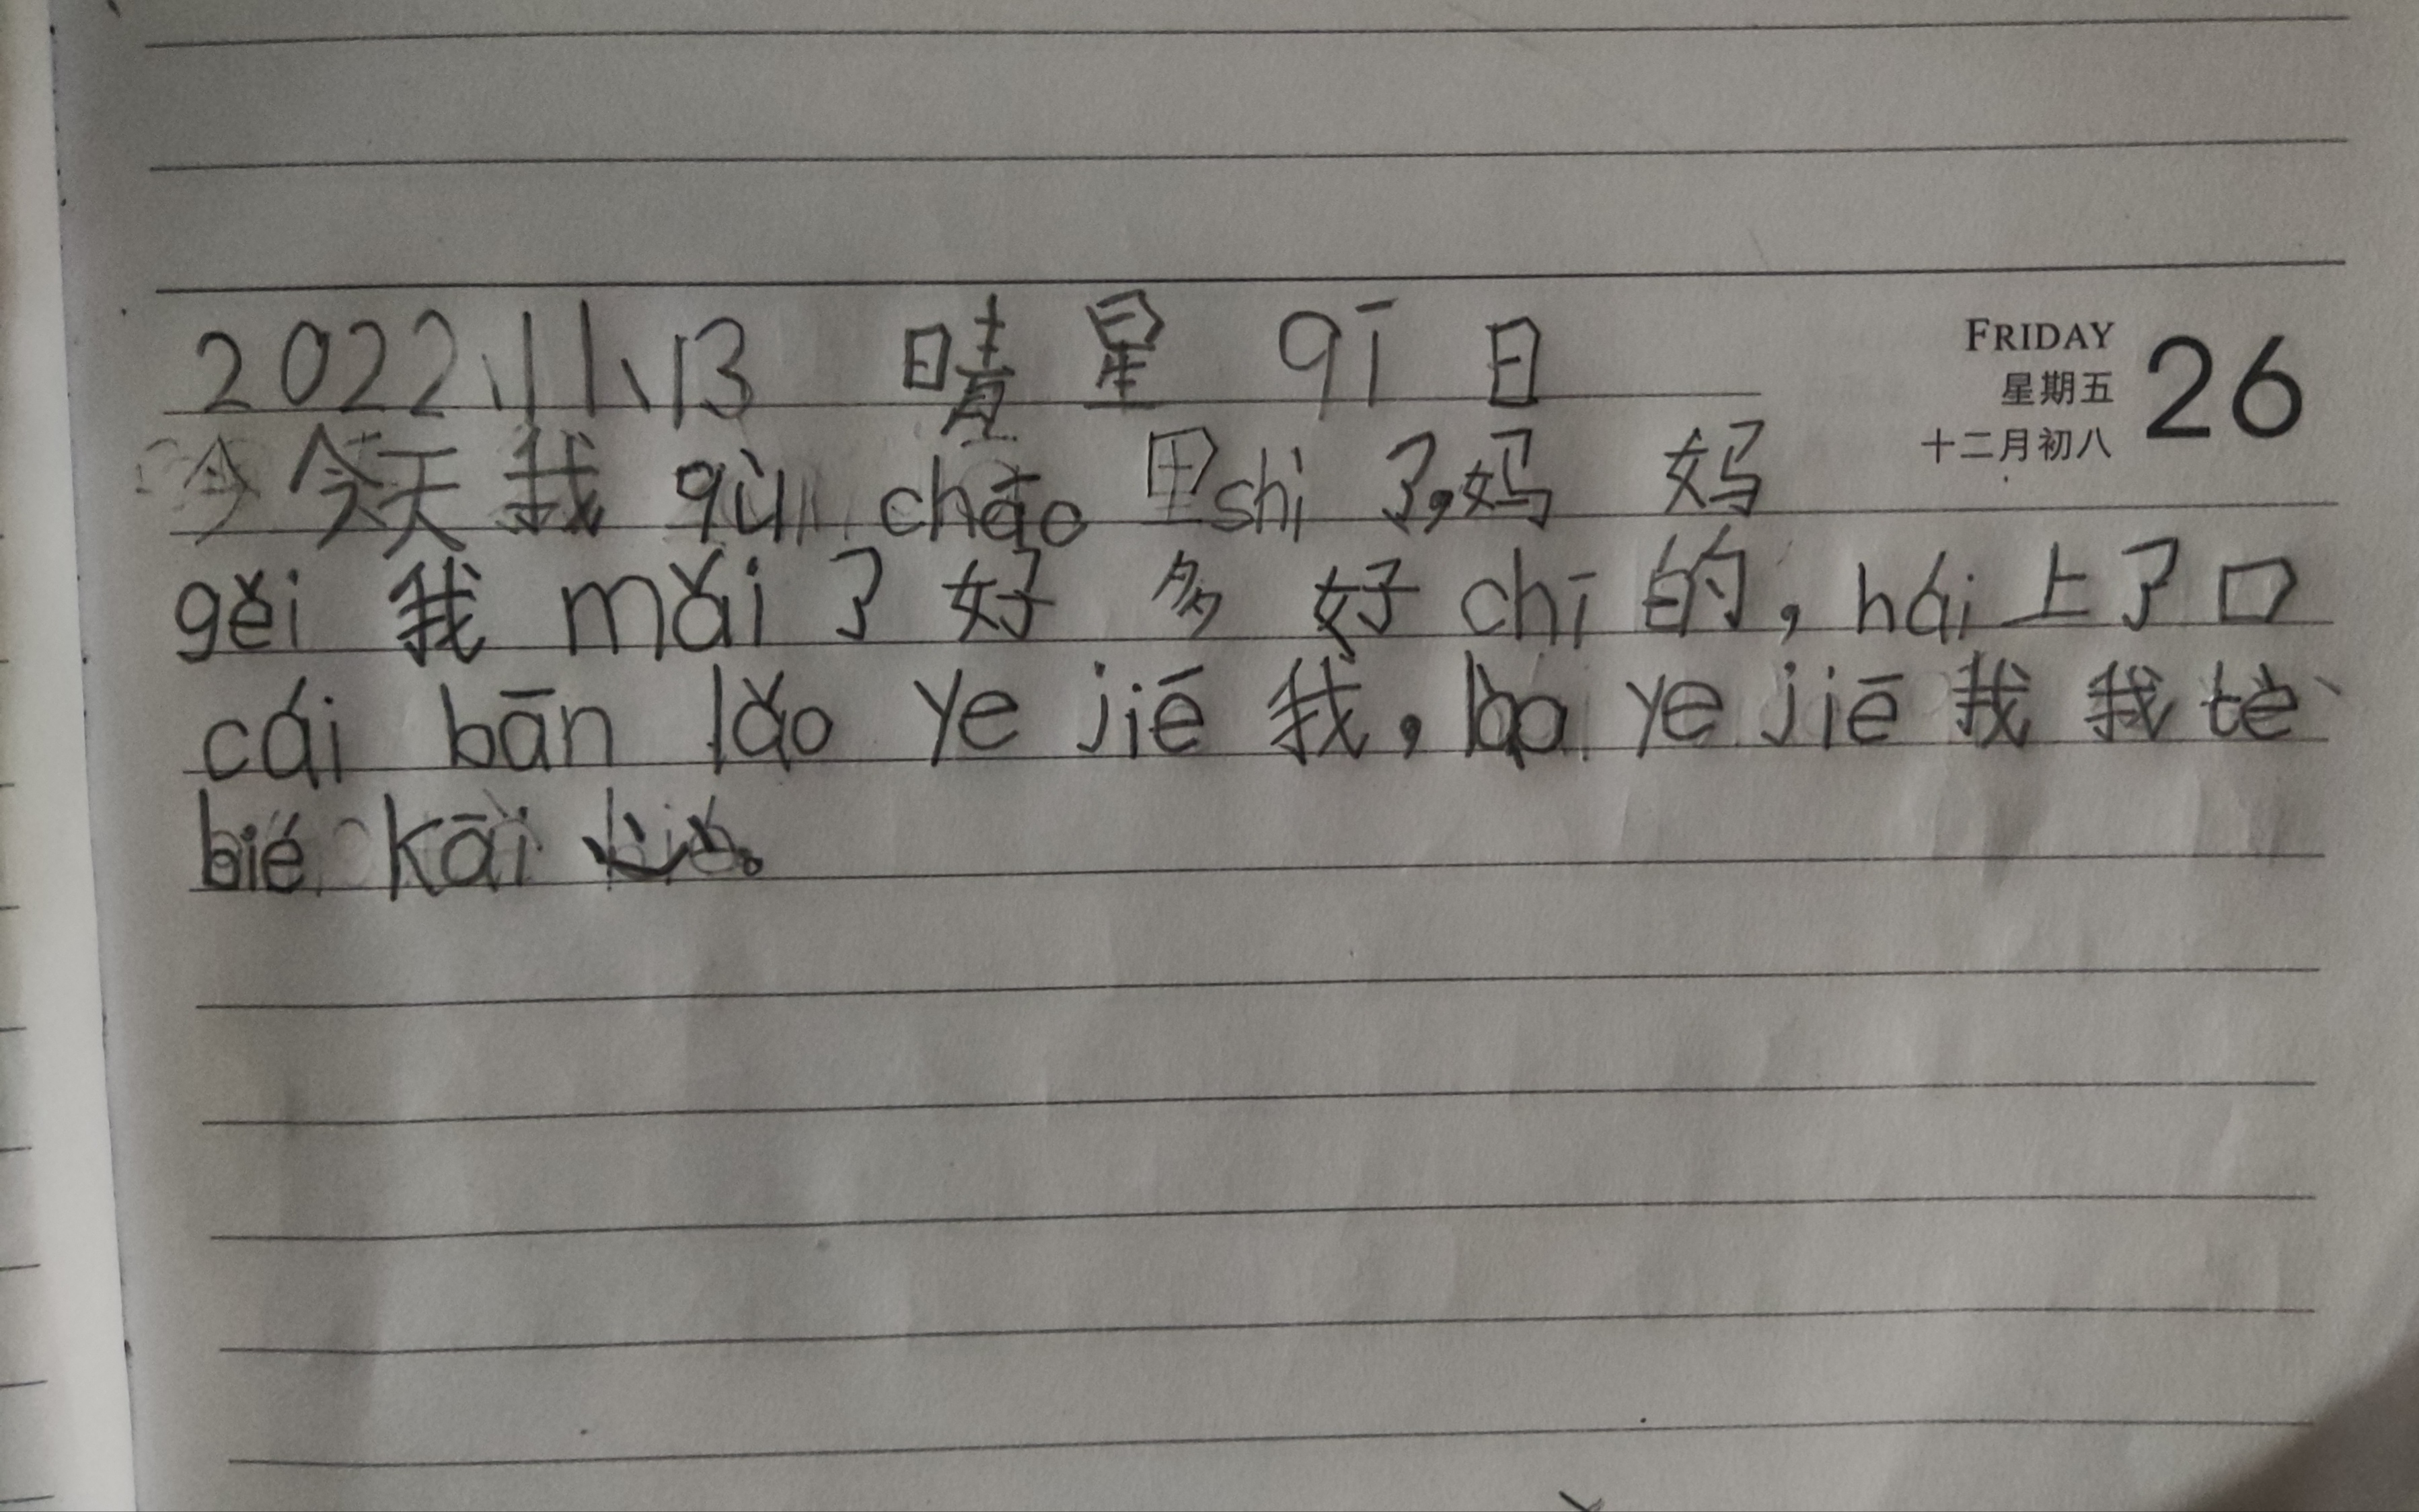 2022、11、13 晴 星 qī 日
FRIDAY
星期五
十二月初八
26
今天 我 qù chāo 里shì 了,妈 妈
gěi 我 mǎi 了 好 多 好 chī 的, hái 上 了 口
cái bān lǎo ye jiē 我, lǎo ye jiē 我 我 tè
bié kāi 心。